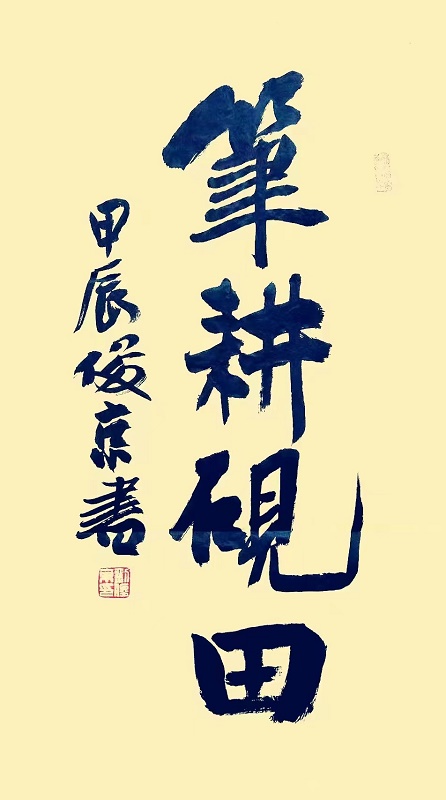 筆耕硯田
甲辰俊京書